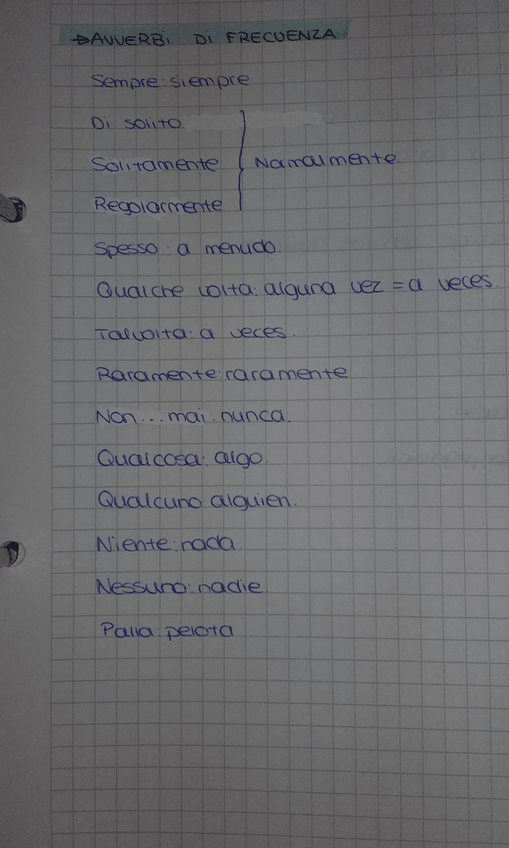 →AVVERBi Di FRECUENZA
Sempre: siempre
Di solito
Solitamente } Normalmente
Regolarmente
Spesso: a menudo
Qualche volta: alguna vez = a veces
Talvolta: a veces.
Raramente: raramente
Non...mai: nunca.
Qualcosa: algo.
Qualcuno: alguien.
Niente: nada
Nessuno: nadie
Palla: pelota